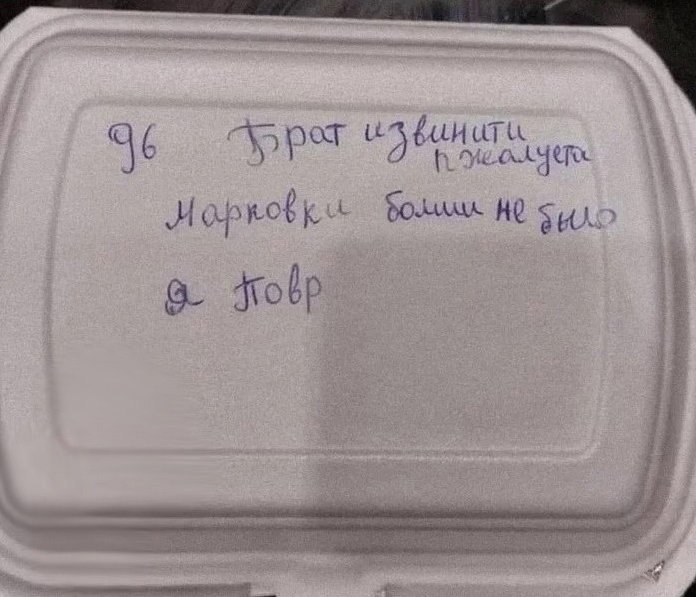 96 Брат извинити
пжалуста
Марковки болши не было
я Повр